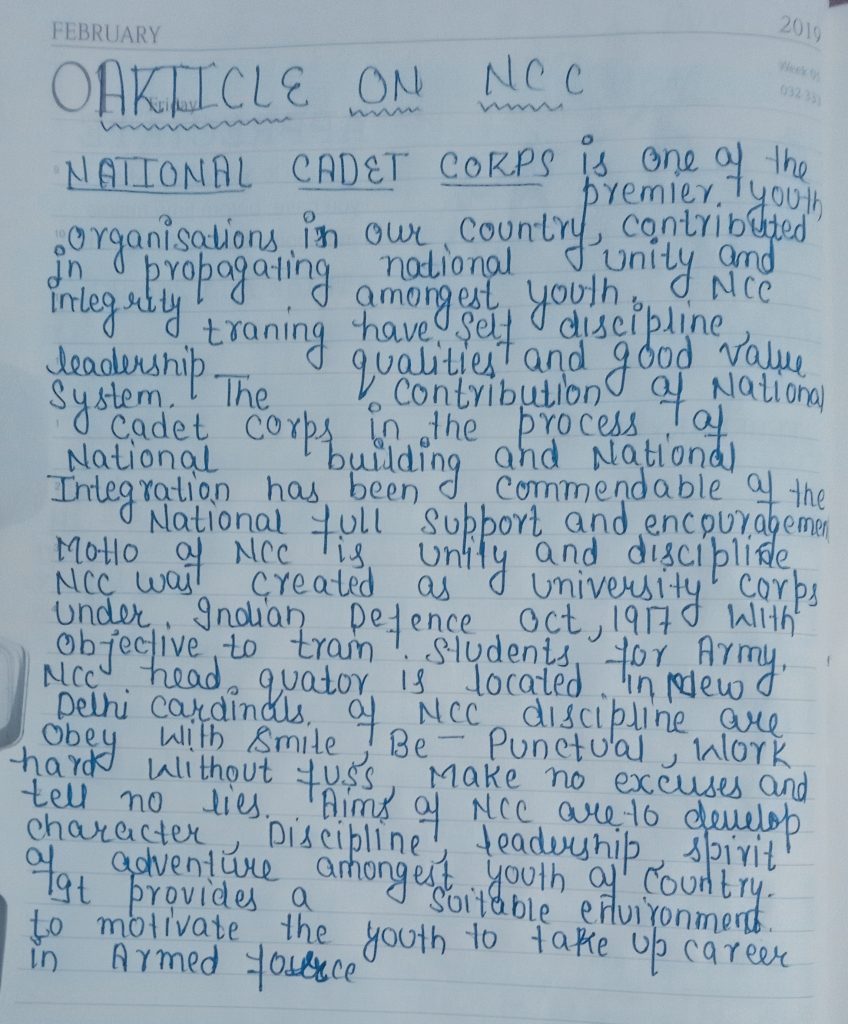 FEBRUARY 2019
Week 05
032-333
Friday
ARTICLE ON NCC
NATIONAL CADET CORPS is one of the
premier youth
organisations in our country, contributed
in propagating national unity and
integrity amongest youth. NCC
traning have self discipline,
leadership qualities and good value
system. The contribution of National
cadet corps in the process of
National building and National
Integration has been commendable of the
National full support and encouragemen
Motto of NCC is unity and discipline
NCC was created as University corps
under Indian Defence Oct, 1917 With
objective to tram students for Army.
NCC head quator is located in New
Delhi cardinals of NCC discipline are
Obey With Smile, Be - Punctual, Work
hard Without fuss, Make no excuses and
tell no lies. Aims of NCC are to develop
character, Discipline, leadership, spirit
of adventure amongest youth of Country.
Igt provides a suitable environment
to motivate the youth to take up career
in Armed